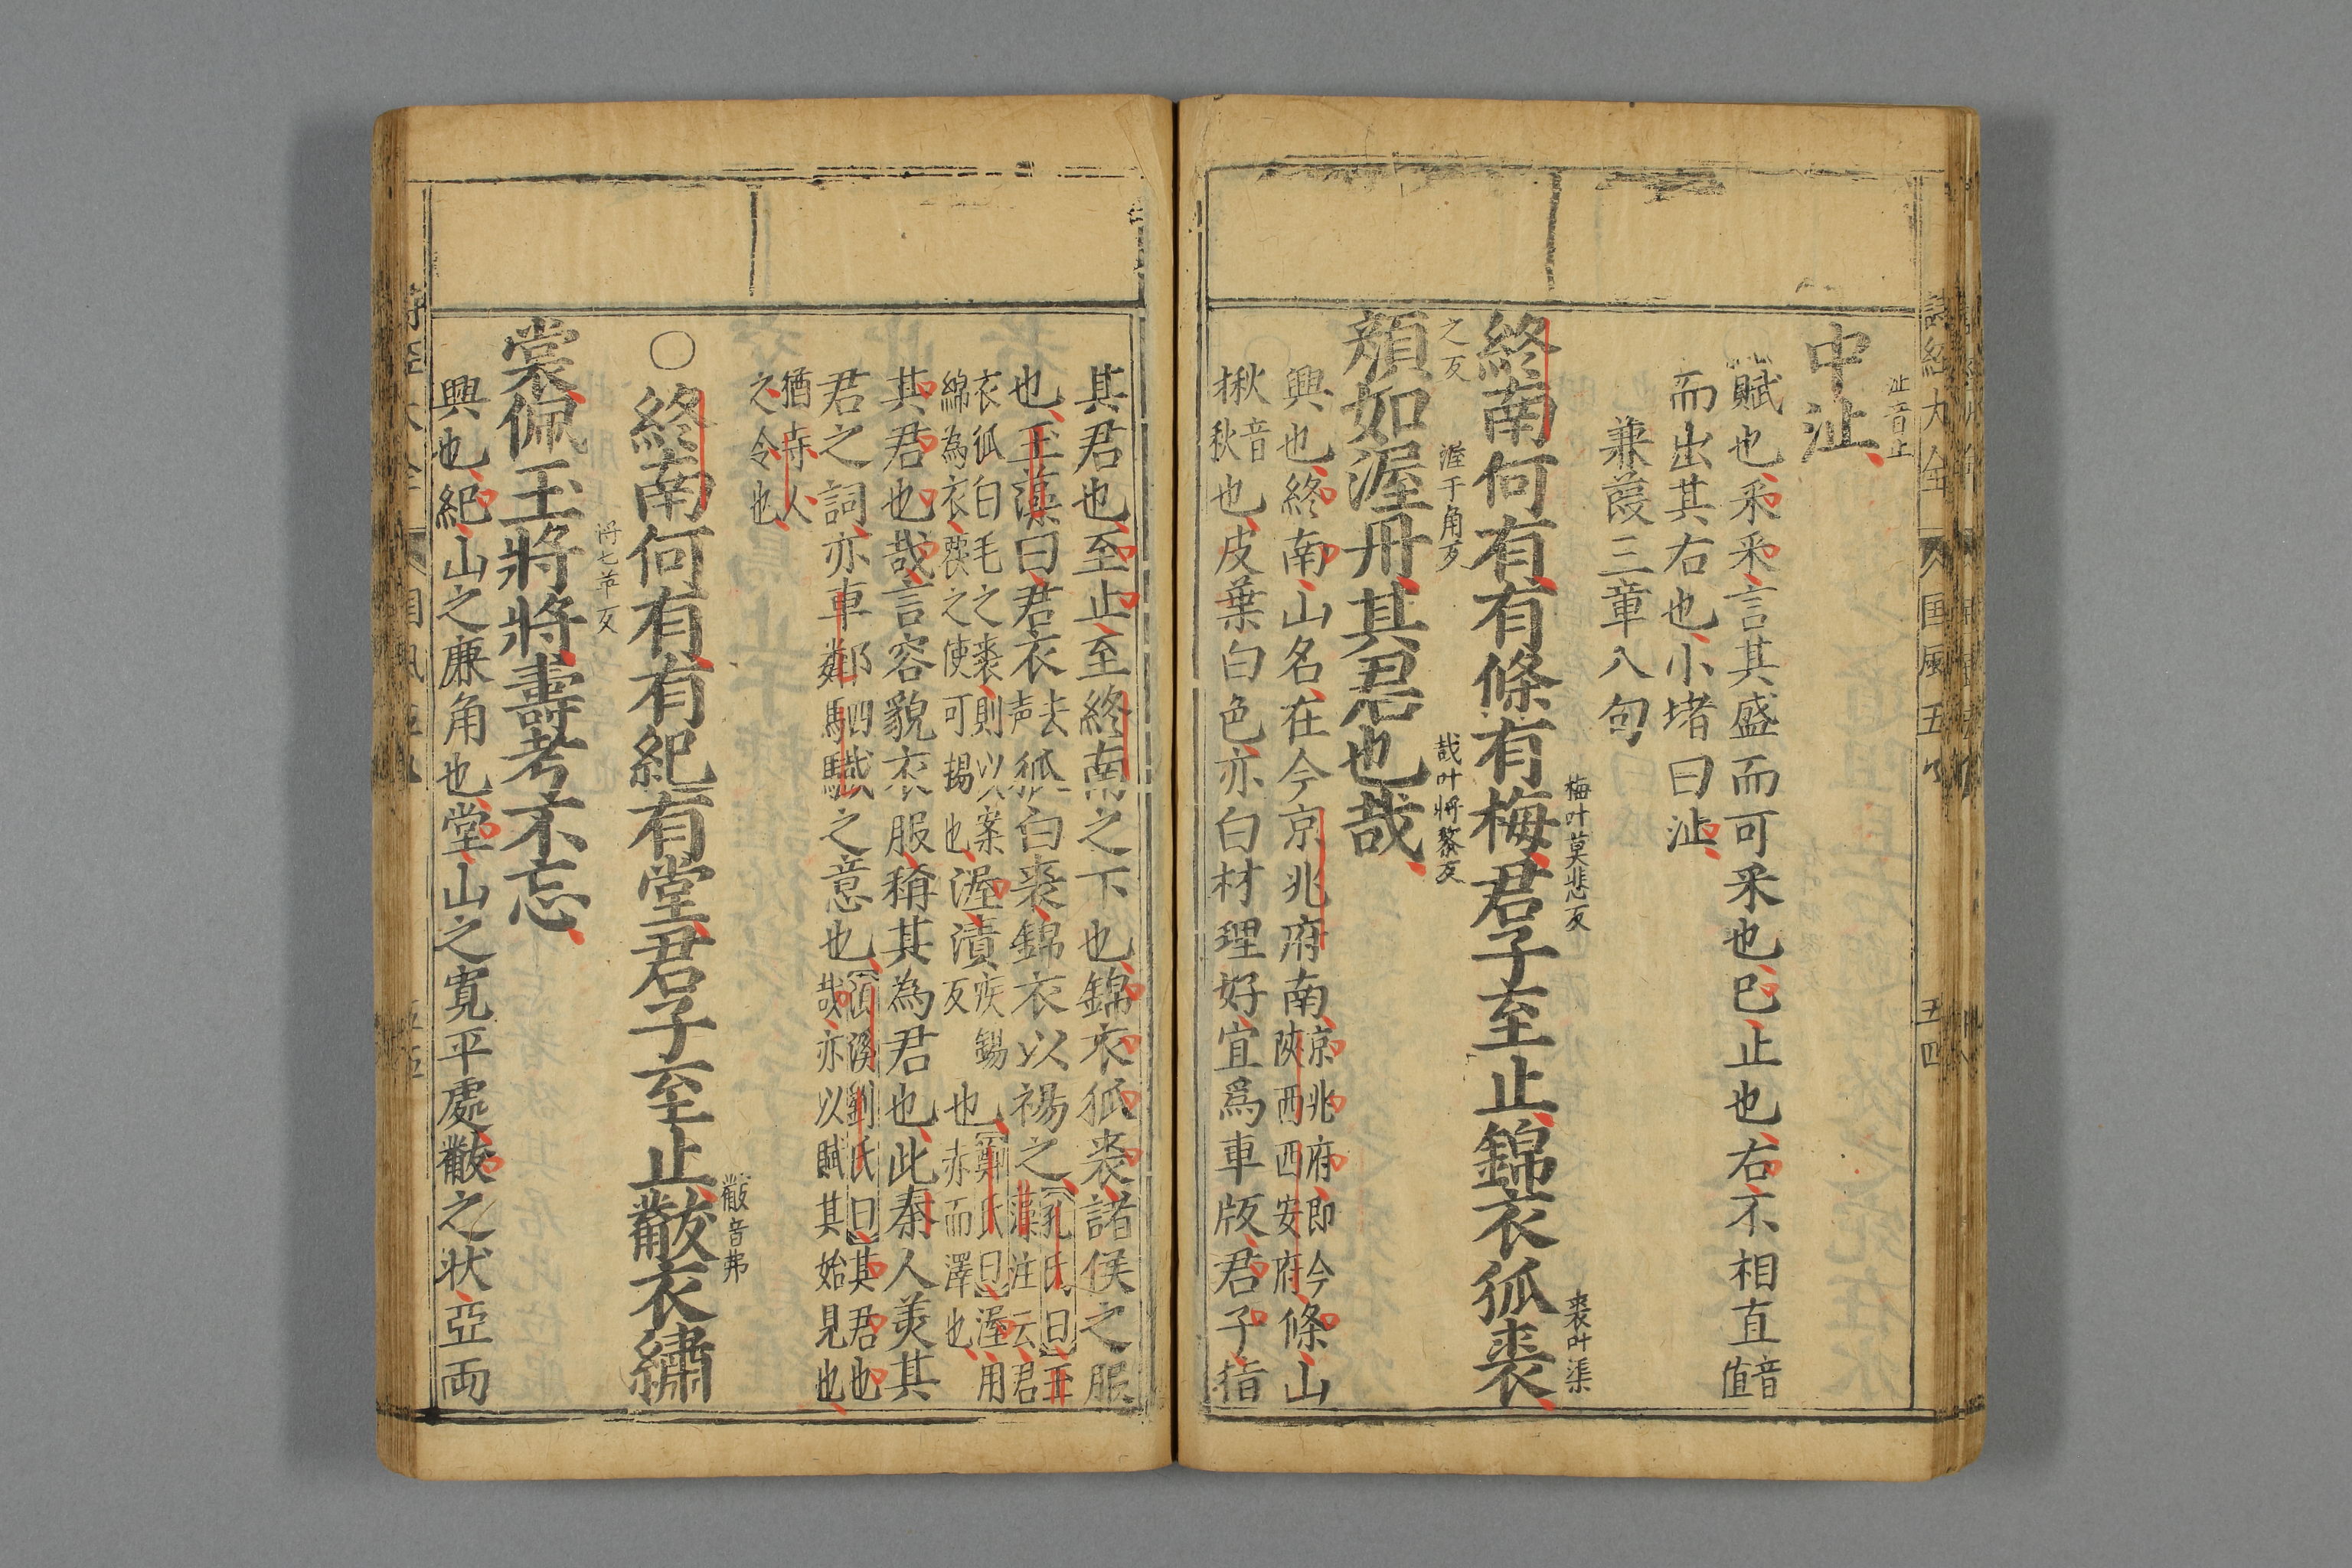 詩經大全
國風五
五四
沚音止
中沚
賦也采采言其盛而可采也已止也右不相直音值
而出其右也小渚曰沚
蒹葭三章八句
梅叶莫悲反
裘叶渠
終南何有有條有梅君子至止錦衣狐裘
之反
渥于角反
哉叶將黎反
顏如渥丹其君也哉
興也終南山名在今京兆府南京兆府即今陝西西安府條山
楸音秋也皮葉白色亦白材理好宜爲車版君子指
其君也至止至終南之下也錦衣狐裘諸侯之服
也玉藻曰君衣去声狐白裘錦衣以裼之孔氏曰玉藻注云君
衣狐白毛之裘則以素綿為衣覆之使可裼也渥漬疾錫反也鄭氏曰渥用赤而澤也
其君也哉言容貌衣服稱其為君也此秦人美其
君之詞亦車鄰駟驖之意也須溪劉氏曰其君也哉亦以賦其始見也
猶寺人之令也
黻音弗
○終南何有有紀有堂君子至止黻衣繡
將七羊反
裳佩玉將將壽考不忘
興也紀山之廉角也堂山之寬平處黻之状亞両